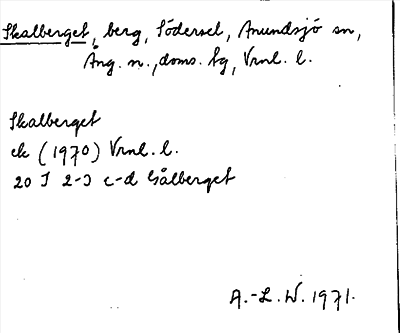 Skalberget, berg, Södersel, Anundsjö sn,
Ång. n., doms. tg, Vrnl. l.
Skalberget
ek (1970) Vrnl. l.
20 I 2-3 c-d Gålberget
A.-L. W. 1971.